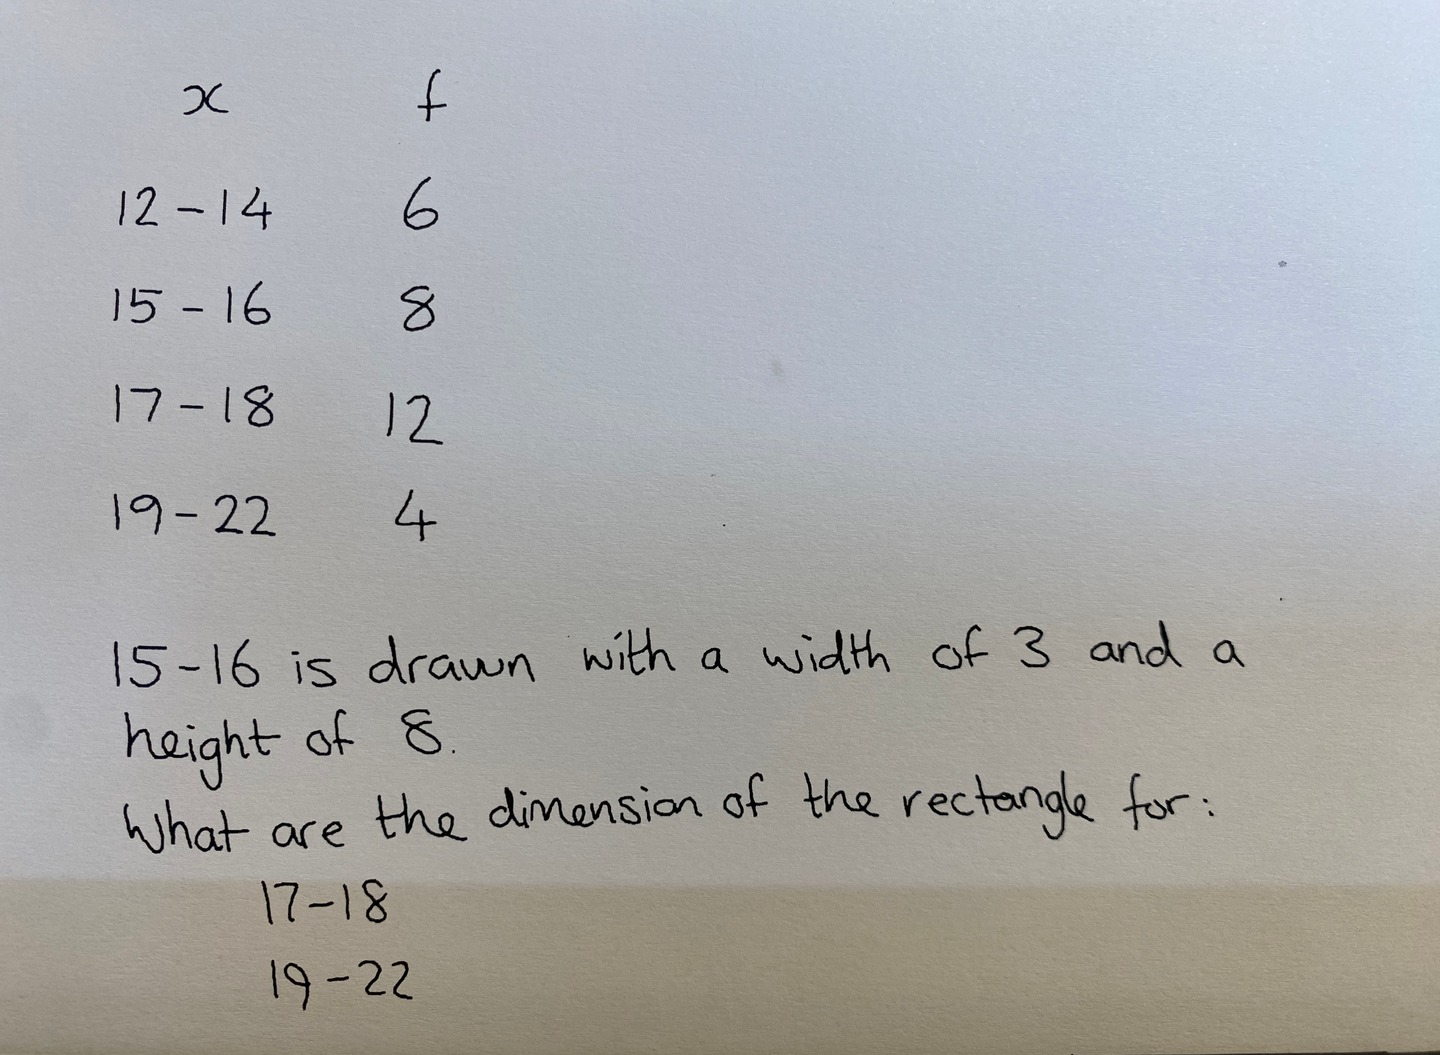 x f
12-14 6
15-16 8
17-18 12
19-22 4
15-16 is drawn with a width of 3 and a
height of 8.
What are the dimension of the rectangle for:
17-18
19-22